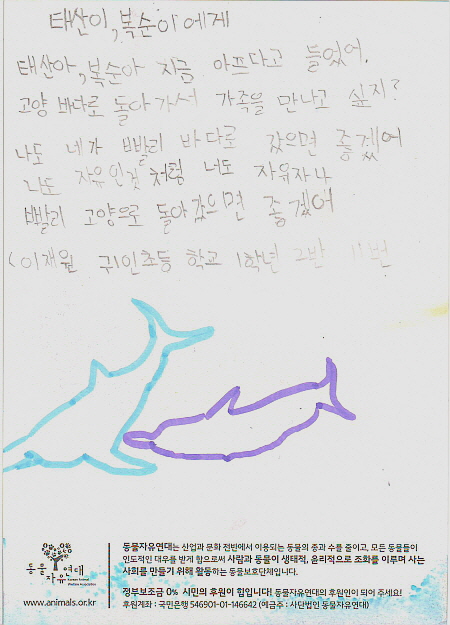 태산이,복순이에게
태산아,복순아 지금 아프다고 들었어.
고양 바다로 돌아가서 가족을 만나고 싶지?
나도 네가 빨리 바다로 갔으면 좋겠어
나도 자유인것 처럼 너도 자유자나
빨리 고양으로 돌아갔으면 좋겠어
(이재원 귀인초등 학교 1학년 2반 11번
동물자유연대는 산업과 문화 전반에서 이용되는 동물의 종과 수를 줄이고, 모든 동물들이
인도적인 대우를 받게 함으로써 사람과 동물이 생태적, 윤리적으로 조화를 이루며 사는
사회를 만들기 위해 활동하는 동물보호단체입니다.
동물자유연대
Korean Animal Welfare Association
정부보조금 0% 시민의 후원이 힘입니다! 동물자유연대의 후원인이 되어 주세요!
www.animals.or.kr
후원계좌 : 국민은행 546901-01-146642 (예금주 : 사단법인 동물자유연대)